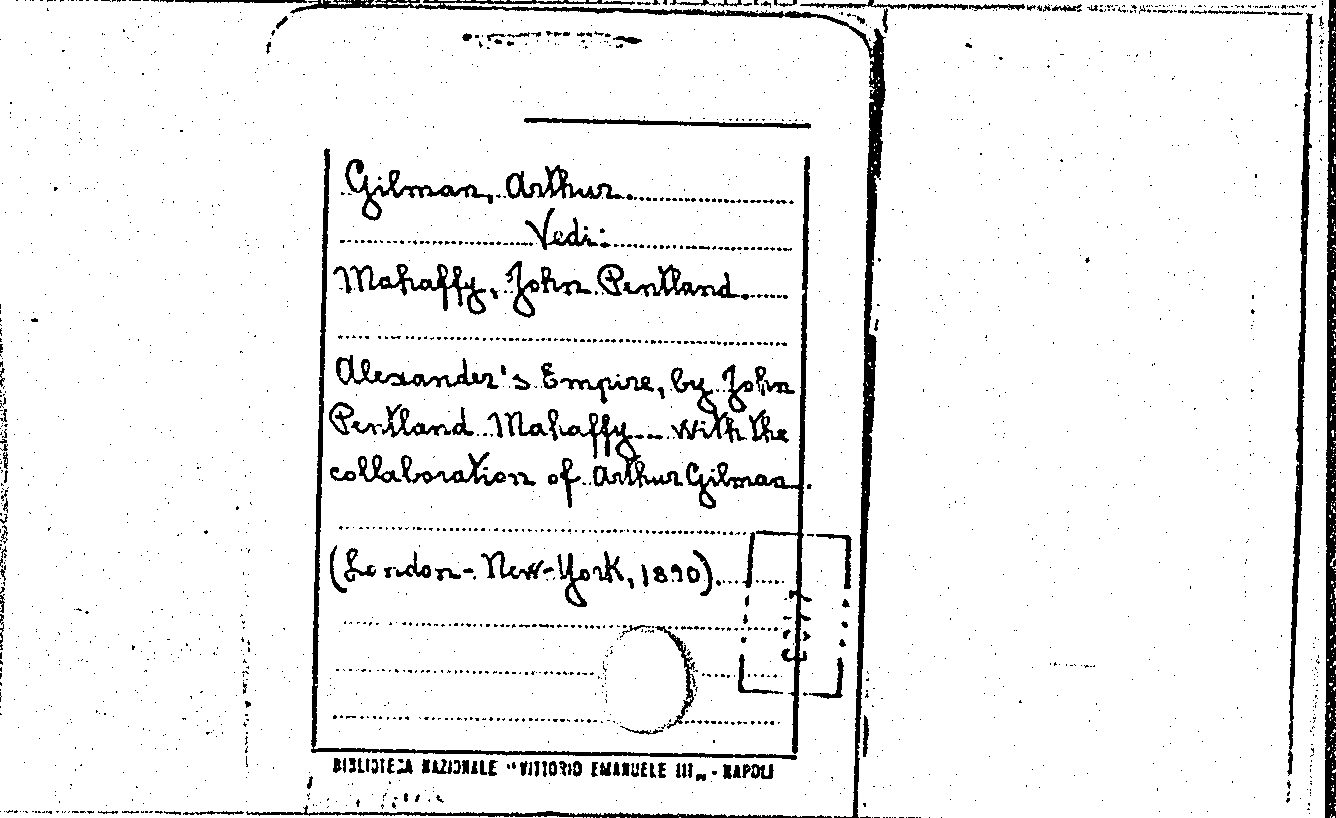 Gilman, Arthur.
Vedi:
Mahaffy, John Pentland.
Alexander's Empire, by John
Pentland Mahaffy... with the
collaboration of Arthur Gilman.
(London - New-York, 1890).
BIBLIOTECA NAZIONALE "VITTORIO EMANUELE III„ - NAPOLI